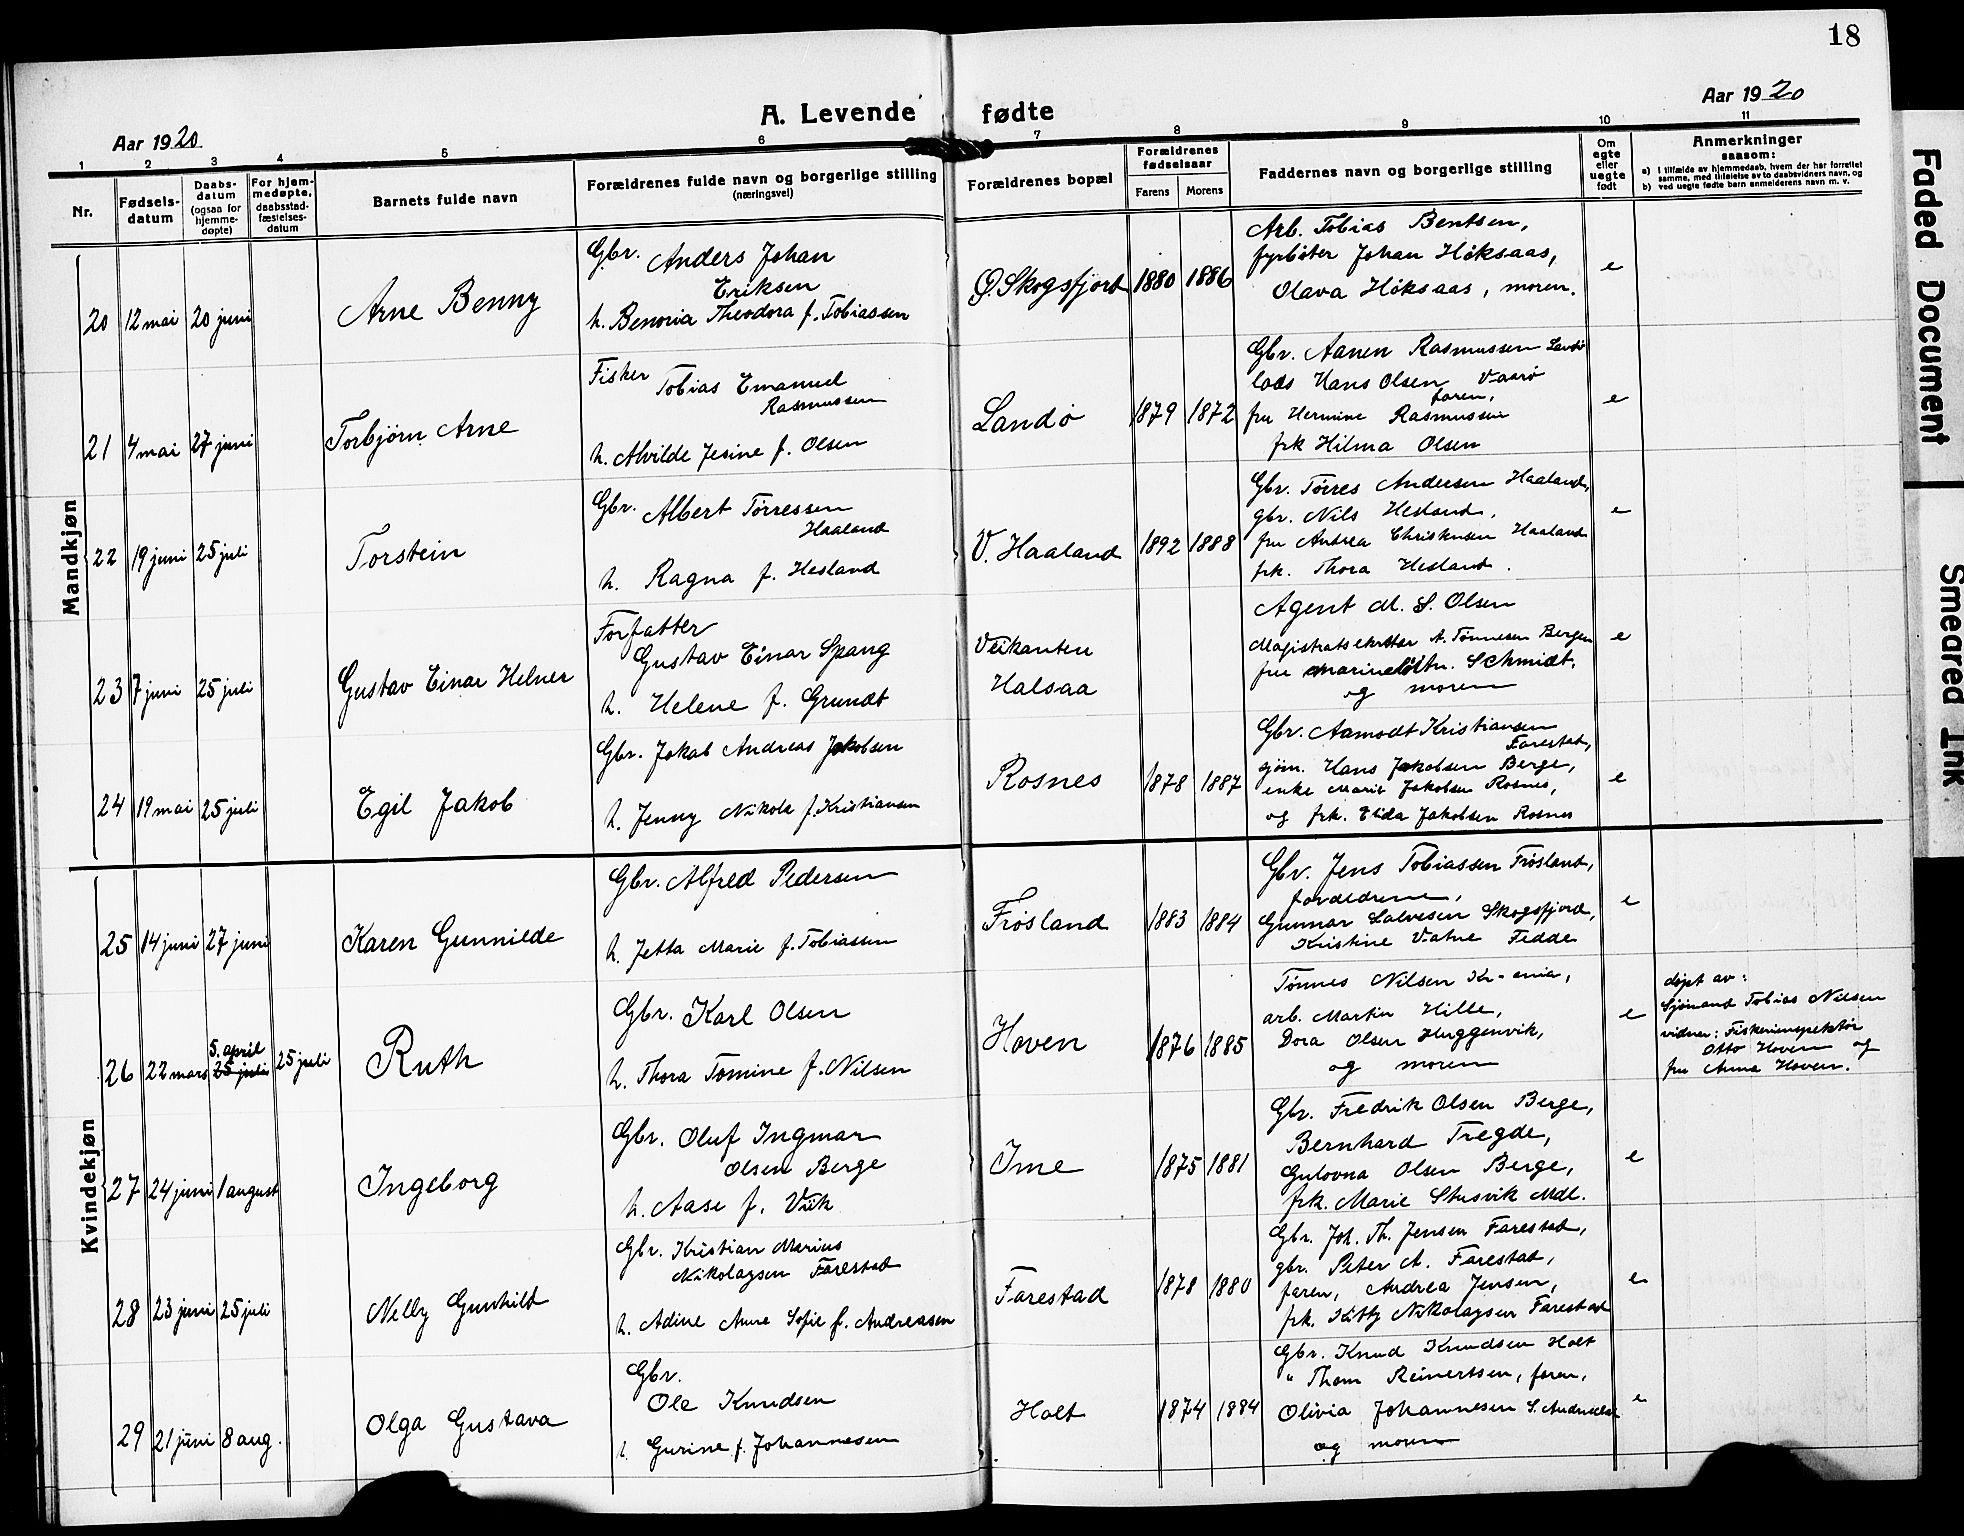 18
Aar 1920
A. Levende fødte
Aar 1920
1 2 3 4 5 6 7 8 9 10 11
Nr.
Fødsels-
datum
Daabs-
datum
(ogsaa for
hjemme-
døpte)
For hjem-
medøpte,
daabsstad-
fæstelses-
datum
Barnets fulde navn
Forældrenes fulde navn og borgerlige stilling
(næringsvei)
Forældrenes bopæl
Forældrenes
fødselsaar
Farens Morens
Faddernes navn og borgerlige stilling
Om
egte
eller
uegte
født
Anmerkninger
saasom:
a) i tilfælde av hjemmedaab, hvem der har forrettet
samme, med tilføielse av to daabsvidners navn, og
b) ved uegte fødte barn anmelderens navn m. v.
Mandkjøn
20 12 mai 20 juni
Arne Benny
Gbr. Anders Johan
Eriksen
h. Benoria Theodora f. Tobiassen
Ø. Skogsfjord 1880 1886
Arb. Tobias Bentsen,
fyrbøter Johan Höksaas,
Olava Höksaas, moren.
e
21 4 mai 27 juni
Torbjørn Arne
Fisker Tobias Emanuel
Rasmussen
h. Alvilde Jesine f. Olsen
Landø 1879 1872
Gbr. Aanen Rasmussen Landø
lods Hans Olsen Vaarø
faren,
fru Hermine Rasmussen
frk Hilma Olsen
e
22 19 juni 25 juli
Torstein
Gbr. Albert Tørressen
Haaland
h. Ragna f. Hesland
V. Haaland 1892 1888
Gbr. Tørres Andersen Haaland,
gbr. Nils Hesland,
fru Andrea Christensen Haaland
frk. Thora Hesland.
e
23 7 juni 25 juli
Gustav Einar Helner
Forfatter
Gustav Einar Spang
h. Helene f. Grundt
Veikanten
Halsaa
Agent M. S. Olsen
Magistratsekretær A. Tønnesen Bergen
fru marineløitn. Schmidt,
og moren
e
24 19 mai 25 juli
Egil Jakob
Gbr. Jakob Andreas Jakobsen
h. Jenny Nikola f. Kristiansen
Rosnes 1878 1887
Gbr. Aamodt Kristiansen
Farestad,
sjøm. Hans Jakobsen Berge,
enke Marie Jakobsen Rosnes,
og frk. Elida Jakobsen Rosnes
e
Kvindekjøn
25 14 juni 27 juni
Karen Gunnilde
Gbr. Alfred Pedersen
h. Jetta Marie f. Tobiassen
Frøsland 1883 1884
Gbr. Jens Tobiassen Frøsland,
forældrene,
Gunnar Salvesen Skogsfjord,
Kristine Vatne Fedde
e
26 22 mars 5. april 25 juli 25 juli
Ruth
Gbr. Karl Olsen
h. Thora Tomine f. Nilsen
Hoven 1876 1885
Tønnes Nilsen Kr-ania,
arb. Martin Hille,
Dora Olsen Huggenvik,
og moren
e
døpt av:
Sjømand Tobias Nilsen
vidner: Fiskeriinspektør
Otto Hoven og
fru Anna Hoven.
27 24 juni 1 august
Ingeborg
Gbr. Oluf Ingmar
Olsen Berge
h. Aase f. Viik
Ime 1875 1881
Gbr. Fredrik Olsen Berge,
Bernhard Tregde,
Gulovna Olsen Berge,
frk. Marie Stusvik Mdl.
e
28 23 juni 25 juli
Nelly Gunhild
Gbr. Kristian Marius
Nikolaysen Farestad
h. Adine Anne Sofie f. Andreassen
Farestad 1878 1880
Gbr. Joh. Th. Jensen Farestad,
gbr. Peter A. Farestad,
faren, Andrea Jensen,
frk. Kitty Nikolaysen Farestad
e
29 21 juni 8 aug.
Olga Gustava
Gbr.
Ole Knudsen
h. Gurine f. Johannesen
Holt 1874 1884
Gbr. Knud Knudsen Holt
" Thom Reinertsen, faren,
Olivia Johannesen S. Audnedal
og moren
e
Faded Document
Smeared Ink